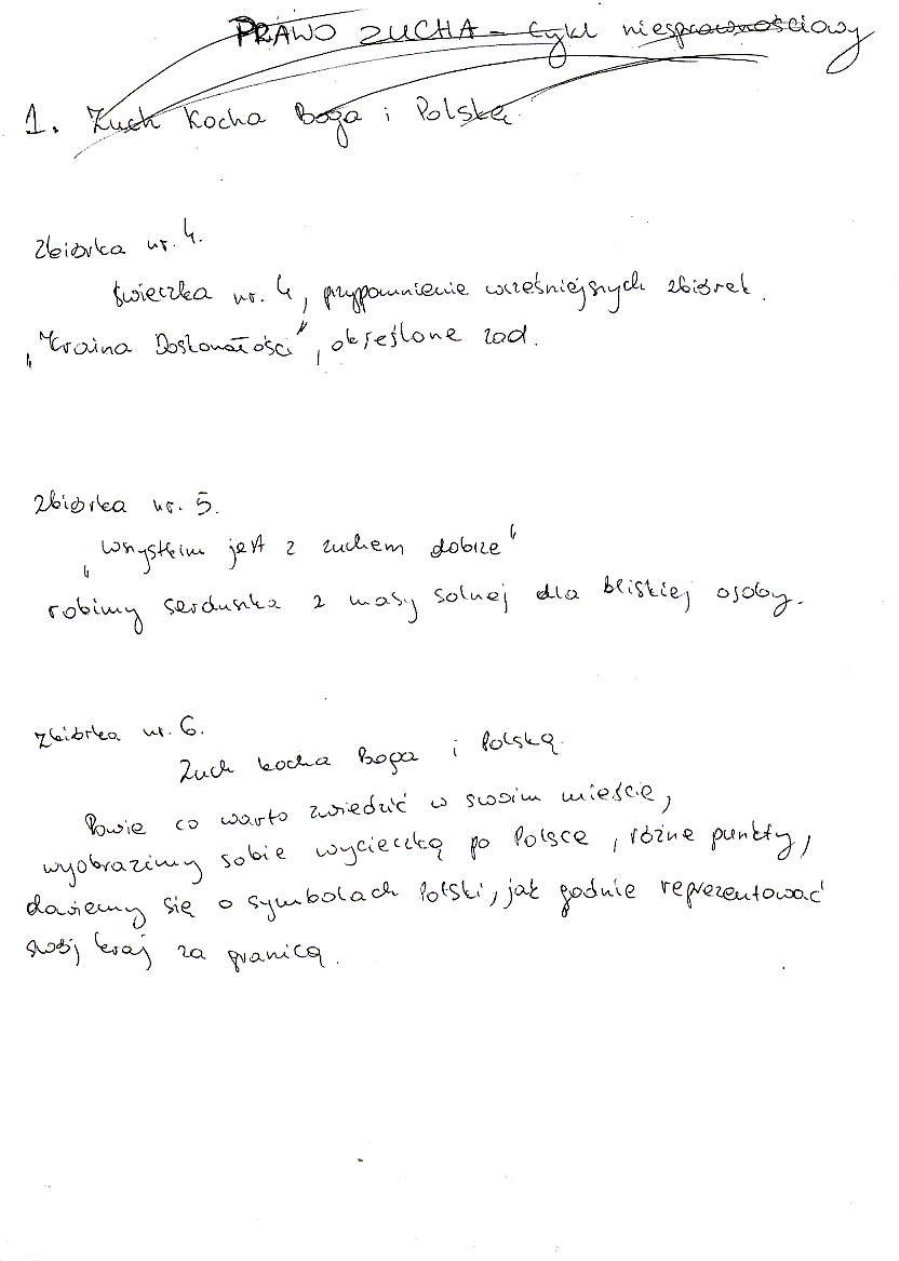 PRAWO ZUCHA - cykl niesprawnościowy
1. Zuch kocha Boga i Polskę.
Zbiórka nr. 4.
Świeczka nr. 4, przypomnienie wcześniejszych zbiórek.
„Kraina Doskonałości", określone zad.
Zbiórka nr. 5.
„Wszystkim jest z zuchem dobrze"
robimy serduszka z masy solnej dla bliskiej osoby.
Zbiórka nr. 6.
Zuch kocha Boga i Polskę.
Powie co warto zwiedzić w swoim mieście,
wyobrazimy sobie wycieczkę po Polsce, różne punkty,
dowiemy się o symbolach Polski, jak godnie reprezentować
swój kraj za granicą.